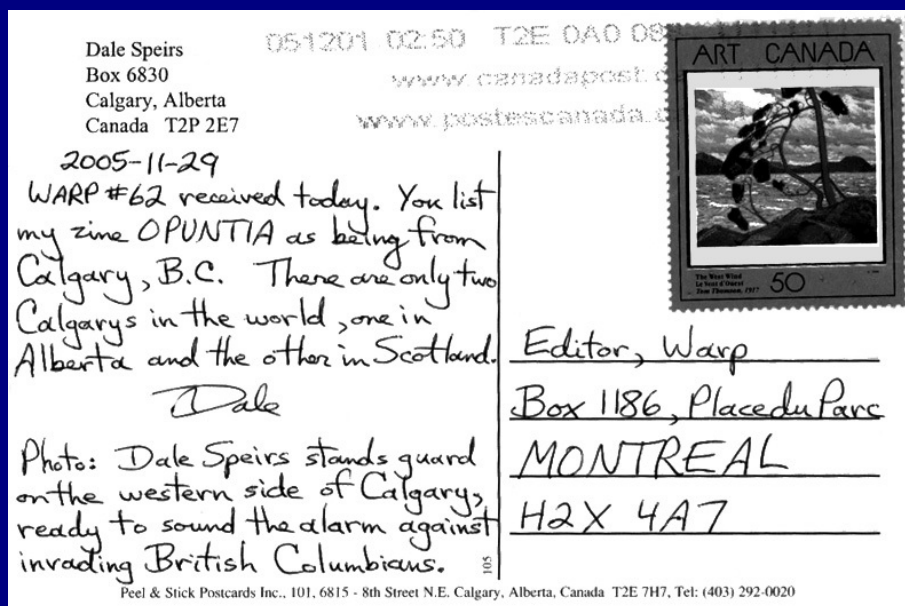 Dale Speirs
Box 6830
Calgary, Alberta
Canada T2P 2E7
051201 02:50 T2E 0A0
www.canadapost.
www.postescanada.
ART CANADA
The West Wind
Le Vent d'Ouest
Tom Thomson, 1917
50
2005-11-29
WARP #62 received today. You list
my zine OPUNTIA as being from
Calgary, B.C. There are only two
Calgarys in the world, one in
Alberta and the other in Scotland.
Dale
Photo: Dale Speirs stands guard
on the western side of Calgary,
ready to sound the alarm against
invading British Columbians.
Editor, Warp
Box 1186, Place du Parc
MONTREAL
H2X 4A7
105
Peel & Stick Postcards Inc., 101, 6815 - 8th Street N.E. Calgary, Alberta, Canada T2E 7H7, Tel: (403) 292-0020